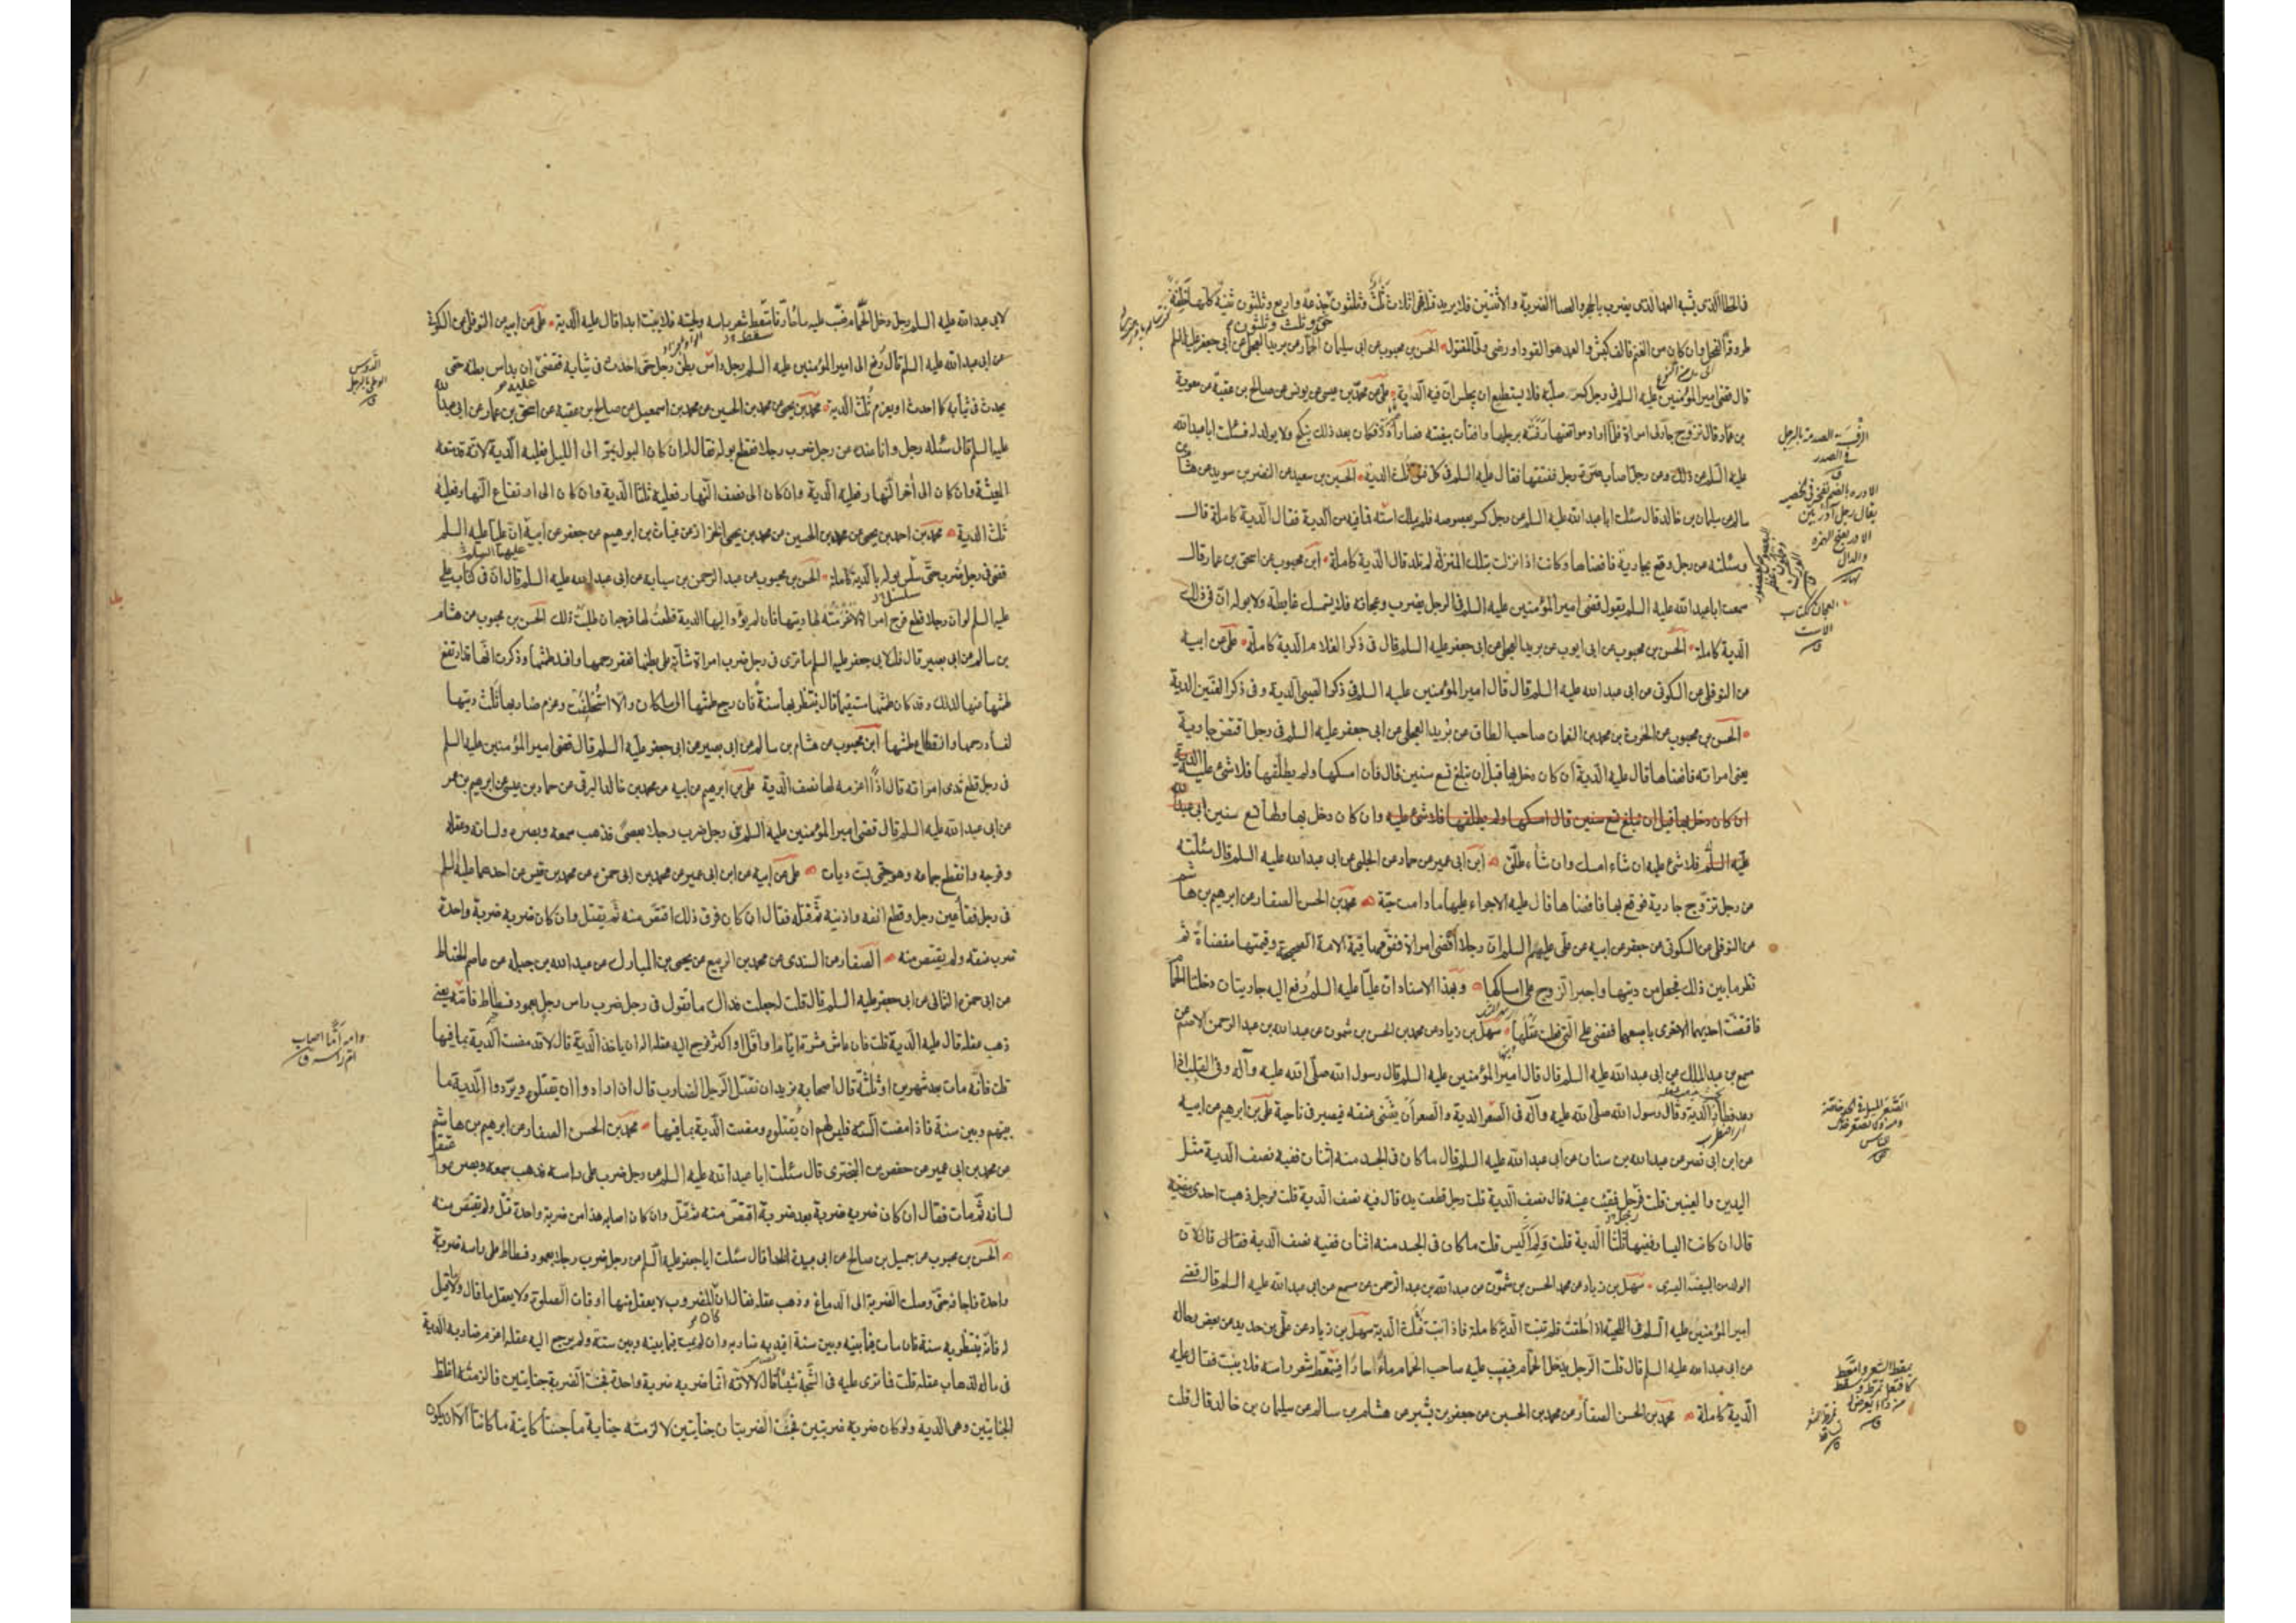 فالخطأ الذى يشبه العمد الذى يضرب بالحجر والعصا الضربة والاثنتين فلا يريد قتله فهى اثلاث ثلث وثلثون جذعة واربع وثلثون ثنية كلها خلفة
طروقة الفحل وان كان من الغنم فالف كبش والعمد هو القود او رضى ولى المقتول الحسن بن محبوب عن ابى سليمان الحمار عن بريد العجلى عن ابى جعفر عليه السلم
قال قضى امير المؤمنين عليه السلم فى رجل كسر صلبه فلا يستطيع ان يجلس ان فيه الدية على عن محمد بن عيسى عن يونس عن صالح بن عقبة عن معوية
بن عمار قال تزوج جار لى امراة فلما اراد مواقعتها رفسته برجلها وافتأت بيضته فصار آدر فكان بعد ذلك ينكح ولا يولد له فسئلت ابا عبد الله
عليه السلم عن ذلك وعن رجل اصاب صرة رجل ففتقها فقال عليه السلم فى كل فتق ثلث الدية الحسين بن سعيد عن النضر بن سويد عن هشام بن
سالم عن سليمان بن خالد قال سئلت ابا عبد الله عليه السلم عن رجل كسر بعصوصه فلم يملك استه فما فيه من الدية فقال الدية كاملة قال
وسئلته عن رجل وقع بجارية فافضاها وكانت اذا نزلت بتلك المنزلة لم تلد قال الدية كاملة ابن محبوب عن اسحق بن عمار قال
سمعت ابا عبد الله عليه السلم يقول قضى امير المؤمنين عليه السلم فى الرجل يضرب وعجانه فلا يستمسك غايطه ولا بوله ان فى ذلك
الدية كاملة الحسن بن محبوب عن ابى ايوب عن بريد العجلى عن ابى جعفر عليه السلم قال فى ذكر الغلام الدية كاملة على عن ابيه
عن النوفلى عن السكونى عن ابى عبد الله عليه السلم قال قال امير المؤمنين عليه السلم فى ذكر الصبى الدية وفى ذكر العنين الدية
الحسن بن محبوب عن الحرث بن محمد بن النعمان صاحب الطاق عن بريد العجلى عن ابى جعفر عليه السلم فى رجل اقتض جارية
يعنى امراته فافضاها قال عليه الدية ان كان دخل بها قبل ان تبلغ تسع سنين قال فان امسكها ولم يطلقها فلا شئ عليه
ان كان دخل بها قبل ان تبلغ تسع سنين قال امسكها ولم يطلقها فلا شئ عليه وان كان دخل بها ولها تسع سنين
فلا شئ عليه ان شاء امسك وان شاء طلق ابن ابى عمير عن حماد عن الحلبى عن ابى عبد الله عليه السلم قال سئلته
عن رجل تزوج جارية فوقع بها فافضاها قال عليه الاجراء عليها ما دامت حية محمد بن الحسن الصفار عن ابرهيم بن هاشم
عن النوفلى عن السكونى عن جعفر عن ابيه عن على عليهم السلم ان رجلا افضى امراة فقومها قيمة الامة الصحيحة وقيمتها مفضاة ثم
نظر ما بين ذلك فجعل من ديتها واجبر الزوج على امساكها وبهذا الاسناد ان عليا عليه السلم رفع اليه جاريتان دخلتا الحمام
فاقتضت احديهما الاخرى باصبعها فقضى على التى فعلت عقلها سهل بن زياد عن محمد بن الحسن بن شمون عن عبد الله بن عبد الرحمن الاصم عن
مسمع بن عبد الملك عن ابى عبد الله عليه السلم قال قال امير المؤمنين عليه السلم قال رسول الله صلى الله عليه وآله وفى القلب اذا
رعد فطار الدية وقال رسول الله صلى الله عليه وآله فى الصعر الدية والصعر ان يثنى عنقه فيصير فى ناحية على بن ابرهيم عن ابيه
عن ابن ابى نصر عن عبد الله بن سنان عن ابى عبد الله عليه السلم قال ما كان فى الجسد منه اثنان ففيه نصف الدية مثل
اليدين والعينين قلت فرجل فقئت عينه قال نصف الدية قلت رجل قطعت يده قال فيه نصف الدية قلت فرجل ذهبت احدى بيضتيه
قال ان كانت اليسار ففيها ثلثا الدية قلت ولم اليس قلت ما كان فى الجسد منه اثنان ففيه نصف الدية فقال قال لان
الولد من البيضة اليسرى سهل بن زياد عن محمد الحسن بن شمون عن عبد الله بن عبد الرحمن عن مسمع عن ابى عبد الله عليه السلم قال قضى
امير المؤمنين عليه السلم فى اللحية اذا حلقت فلم تنبت الدية كاملة فاذا نبتت فثلث الدية سهل بن زياد عن على بن حديد عن بعض رجاله
عن ابى عبد الله عليه السلم قال قلت الرجل يدخل الحمام فيصب عليه صاحب الحمام ماء حارا فيمتعط شعر راسه فلا ينبت فقال عليه
الدية كاملة محمد بن الحسن الصفار عن محمد بن الحسين عن جعفر بن بشير عن هشام بن سالم عن سليمان بن خالد قال قلت
لابى عبد الله عليه السلم رجل دخل الحمام فصب عليه ماء حار فامتعط شعر راسه ولحيته فلا ينبت ابدا قال عليه الدية على عن ابيه عن النوفلى عن السكونى
عن ابى عبد الله عليه السلم قال رفع الى امير المؤمنين عليه السلم رجل داس بطن رجل حتى احدث فى ثيابه فقضى ان يداس بطنه حتى
يحدث فى ثيابه كما احدث او يغرم ثلث الدية محمد بن يحيى عن محمد بن الحسين عن محمد بن اسمعيل عن صالح بن عقبه عن اسحق بن عمار عن ابى عبد الله
عليه السلم قال سئله رجل وانا عنده عن رجل ضرب رجلا فقطع بوله فقال له ان كان البول يمر الى الليل فعليه الدية لانه قد منعه
المعيشة وان كان الى آخر النهار فعليه الدية وان كان الى نصف النهار فعليه ثلثا الدية وان كان الى ارتفاع النهار فعليه
ثلث الدية محمد بن احمد بن يحيى عن محمد بن الحسين عن محمد بن يحيى الخزاز عن غياث بن ابرهيم عن جعفر عن ابيه ان عليا عليه السلم
قضى فى رجل ضرب حتى سلس بوله بالدية كاملة الحسن بن محبوب عن عبد الرحمن بن سيابه عن ابى عبد الله عليه السلم قال ان فى كتاب على
عليه السلم لو ان رجلا قطع فرج امراة لاغرمته لها ديتها فان لم يؤد اليها الدية قطعت لها فرجه ان طلبت ذلك الحسن بن محبوب عن هشام
بن سالم عن ابى بصير قال قلت لابى جعفر عليه السلم ما ترى فى رجل ضرب امراة شابة على بطنها فعقر رحمها وافسد طمثها وذكرت انها قد ارتفع
طمثها عنها لذلك وقد كان طمثها مستقيما قال ينتظر بها سنة فان رجع طمثها الى ما كان والا استحلفت وغرم ضاربها ثلث ديتها
لفساد رحمها وانقطاع طمثها ابن محبوب عن هشام بن سالم عن ابى بصير عن ابى جعفر عليه السلم قال قضى امير المؤمنين عليه السلم
فى رجل قطع ثدى امراته قال اذا اغرمه لها نصف الدية على بن ابرهيم عن ابيه عن محمد بن خالد البرقى عن حماد بن عيسى عن ابرهيم بن عمر
عن ابى عبد الله عليه السلم قال قضى امير المؤمنين عليه السلم فى رجل ضرب رجلا بعصى فذهب سمعه وبصره ولسانه وعقله
وفرجه وانقطع جماعه وهو حى بست ديات على عن ابيه عن ابن ابى عمير عن محمد بن ابى حمزه عن محمد بن قيس عن احدهما عليه السلم
فى رجل فقأ عين رجل وقطع انفه واذنيه ثم قتله فقال ان كان فرق ذلك اقتص منه ثم يقتل وان كان ضربه ضربة واحدة
ضرب عنقه ولم يقتص منه الصفار عن السندى عن محمد بن الربيع عن يحيى بن المبارك عن عبد الله بن جبله عن عاصم الحناط
عن ابى حمزه الثمالى عن ابى جعفر عليه السلم قال قلت له جعلت فداك ما تقول فى رجل ضرب راس رجل بعمود فسطاط فامه يعنى
ذهب عقله قال عليه الدية قلت فان عاش عشرة ايام او اقل او اكثر فرجع اليه عقله اله ان ياخذ الدية قال لا قد مضت الدية بما فيها
قلت فانه مات بعد شهرين او ثلثة قال اصحابه نريد ان نقتل الرجل الضارب قال ان ارادوا ان يقتلوه ويردوا الدية ما
بينهم وبين سنة فاذا مضت السنة فليس لهم ان يقتلوه ومضت الدية بما فيها محمد بن الحسن الصفار عن ابرهيم بن هاشم
عن محمد بن ابى عمير عن حفص بن البخترى قال سئلت ابا عبد الله عليه السلم عن رجل ضرب على راسه فذهب سمعه وبصره واعتقل
لسانه ثم مات فقال ان كان ضربه ضربة بعد ضربة اقتص منه ثم قتل وان كان اصابه هذا من ضربة واحدة قتل ولم يقتص منه
الحسن بن محبوب عن جميل بن صالح عن ابى عبيدة الحذا قال سئلت ابا جعفر عليه السلم عن رجل ضرب رجلا بعمود فسطاط على راسه ضربة
واحدة فاجافه حتى وصلت الضربة الى الدماغ وذهب عقله فقال ان كان المضروب لا يعقل منها اوقات الصلوة ولا يعقل ما قال ولا ما قيل
له فانه ينتظر به سنة فان مات فيما بينه وبين سنة اقيد به ضاربه وان لم يمت فيما بينه وبين سنة ولم يرجع اليه عقله اغرم ضاربه الدية
فى ماله لذهاب عقله قلت فما ترى عليه فى الشجة شيئا قال لا لانه انما ضربه ضربة واحدة فجنت الضربة جنايتين فالزمته اغلظ
الجنايتين وهى الدية ولو كان ضربه ضربتين فجنت الضربتان جنايتين لالزمته جناية ما جنتا كاينة ما كانتا الا ان يكون